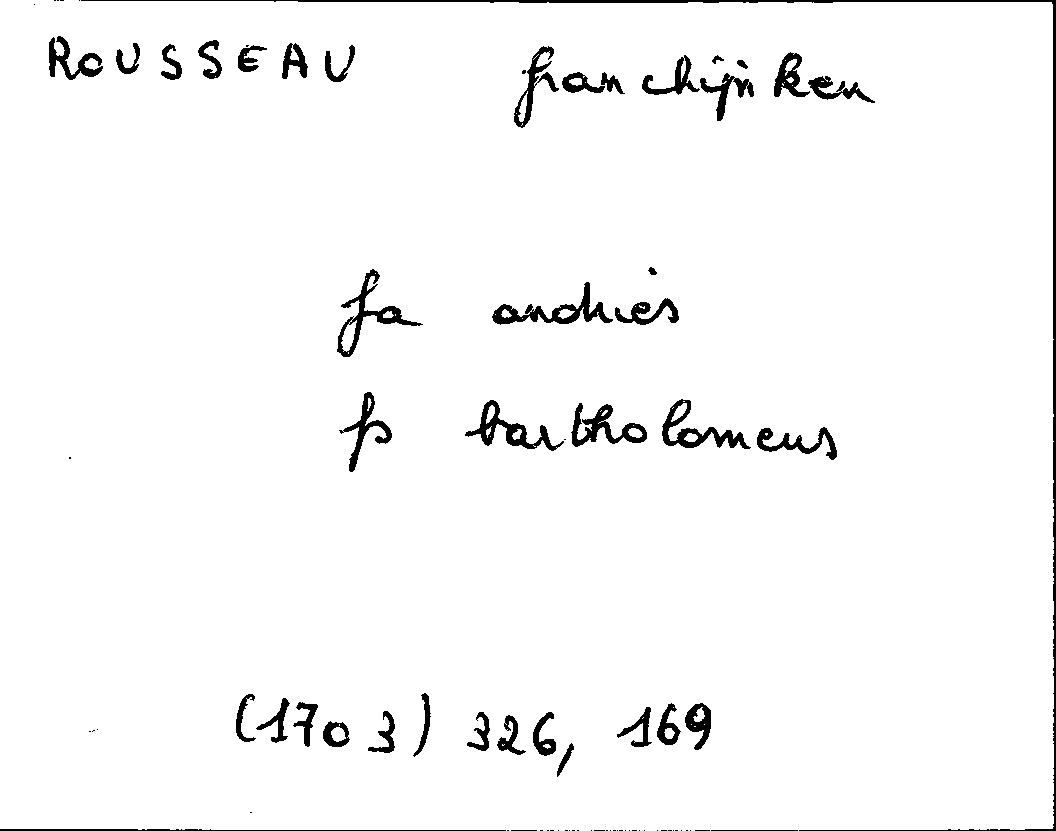 ROUSSEAU franchijnken
fa andries
fs bartholomeus
(1703) 326, 169